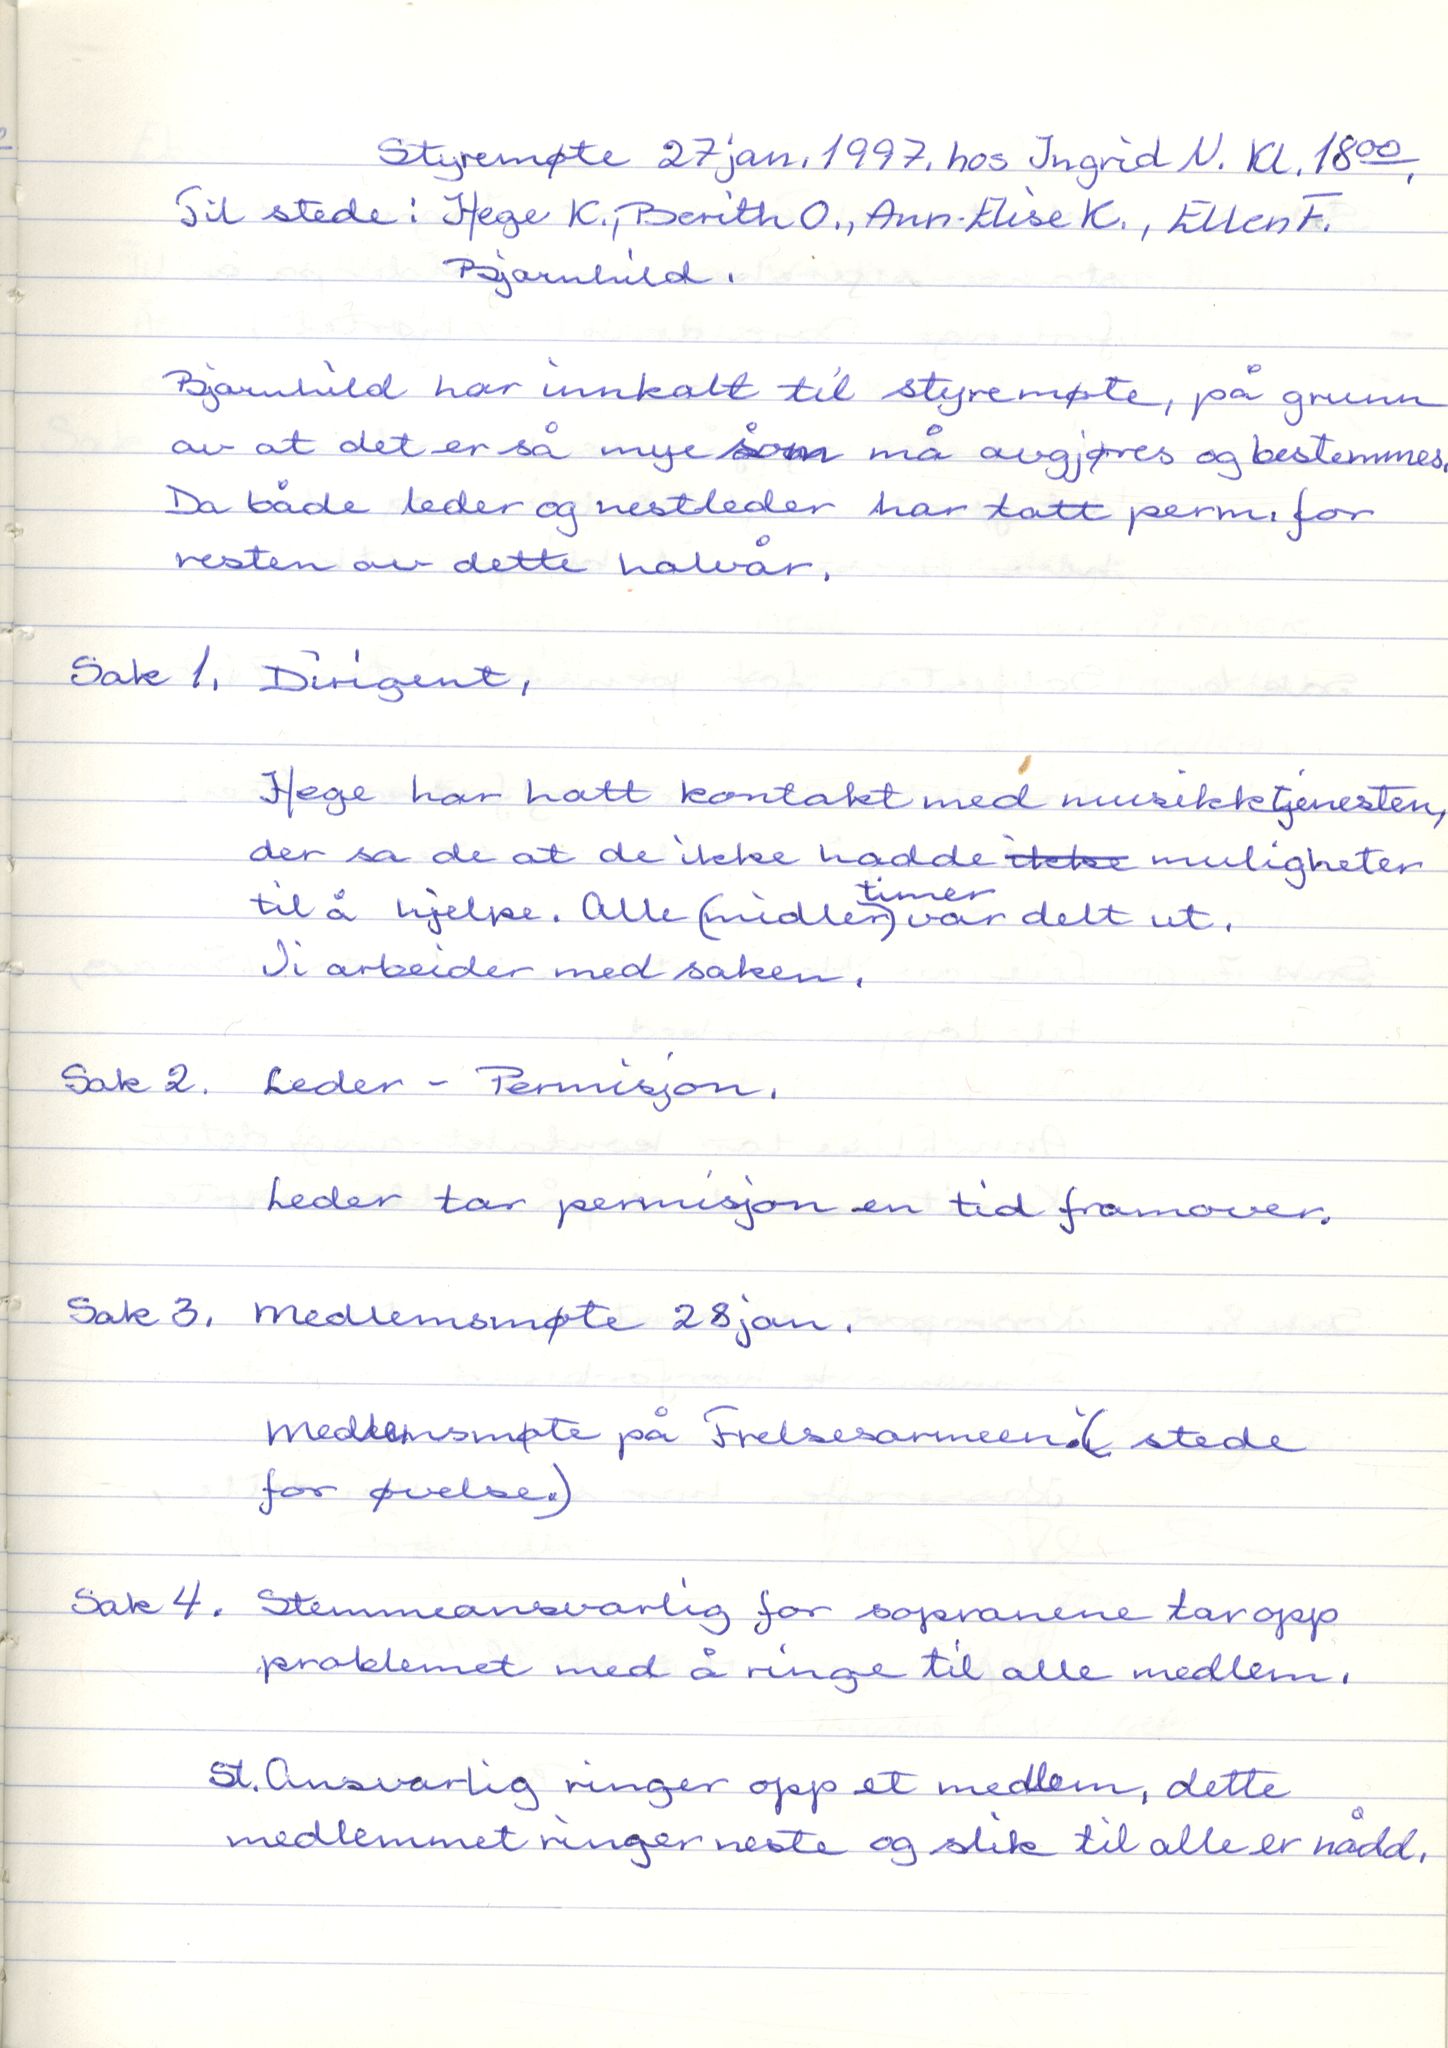 Styremøte 27 jan. 1997. hos Ingrid N. Kl. 18⁰⁰.
Til stede: Hege K., Berith O., Ann-Elise K., Ellen F.
Bjarnhild.
Bjarnhild har innkalt til styremøte, på grunn
av at det er så mye som må avgjøres og bestemmes.
Da både leder og nestleder har tatt perm. for
resten av dette halvår.
Sak 1. Dirigent.
Hege har hatt kontakt med musikktjenesten,
der sa de at de ikke hadde ikke muligheter
til å hjelpe. Alle (midler) timer var delt ut.
Vi arbeider med saken.
Sak 2. Leder - Permisjon.
Leder tar permisjon en tid framover.
Sak 3. Medlemsmøte 28 jan.
Medlemsmøte på Frelsesarmeen. (i stede
for øvelse.)
Sak 4. Stemmeansvarlig for sopranene tar opp
problemet med å ringe til alle medlem.
St. Ansvarlig ringer opp et medlem, dette
medlemmet ringer neste og slik til alle er nådd.